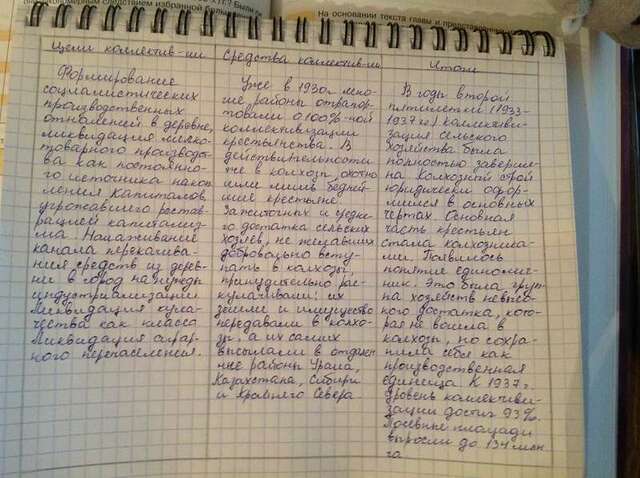 На основании текста главы и представ
Цели коллектив-ции
Формирование
социалистических
производственных
отношений в деревне,
ликвидация мелко-
товарного производст-
ва как постоянно-
го источника накоп
ления капиталов,
угрожавшего рестав-
рацией капитализ-
ма. Налаживание
канала перекачива-
ния средств из дерев-
ни в город на нужды
индустриализации
Ликвидация кула-
чества как класса
Ликвидация аграр-
ного перенаселения.
Средства коллектив-ции
Уже в 1930г. мно-
гие районы отрапор-
товали о 100%-ной
коллективизации
крестьянства. В
действительности
же в колхозы охотно
шли лишь бедней-
шие крестьяне.
Зажиточных и средне-
го достатка сельских
хозяев, не желавших
добровольно всту-
пать в колхозы,
принудительно рас-
кулачивали: их
земли и имущество
передавали в колхо-
зы, а их самих
высылали в отдален-
ные районы Урала,
Казахстана, Сибири
и Крайнего Севера.
Итоги
В годы второй
пятилетки (1933-
1937гг.) коллективи-
зация сельского
хозяйства была
полностью заверше-
на Колхозный строй
юридически офор-
мился в основных
чертах. Основная
часть крестьян
стала колхозника-
ми. Появилось
понятие единолич-
ник. Это была груп-
па хозяйств невысо-
кого достатка, кото-
рая не вошла в
колхозы, но сохра-
нила себя как
производственная
единица К 1937г.
уровень коллективи-
зации достиг 93%.
Посевные площади
выросли до 134 млн
га.